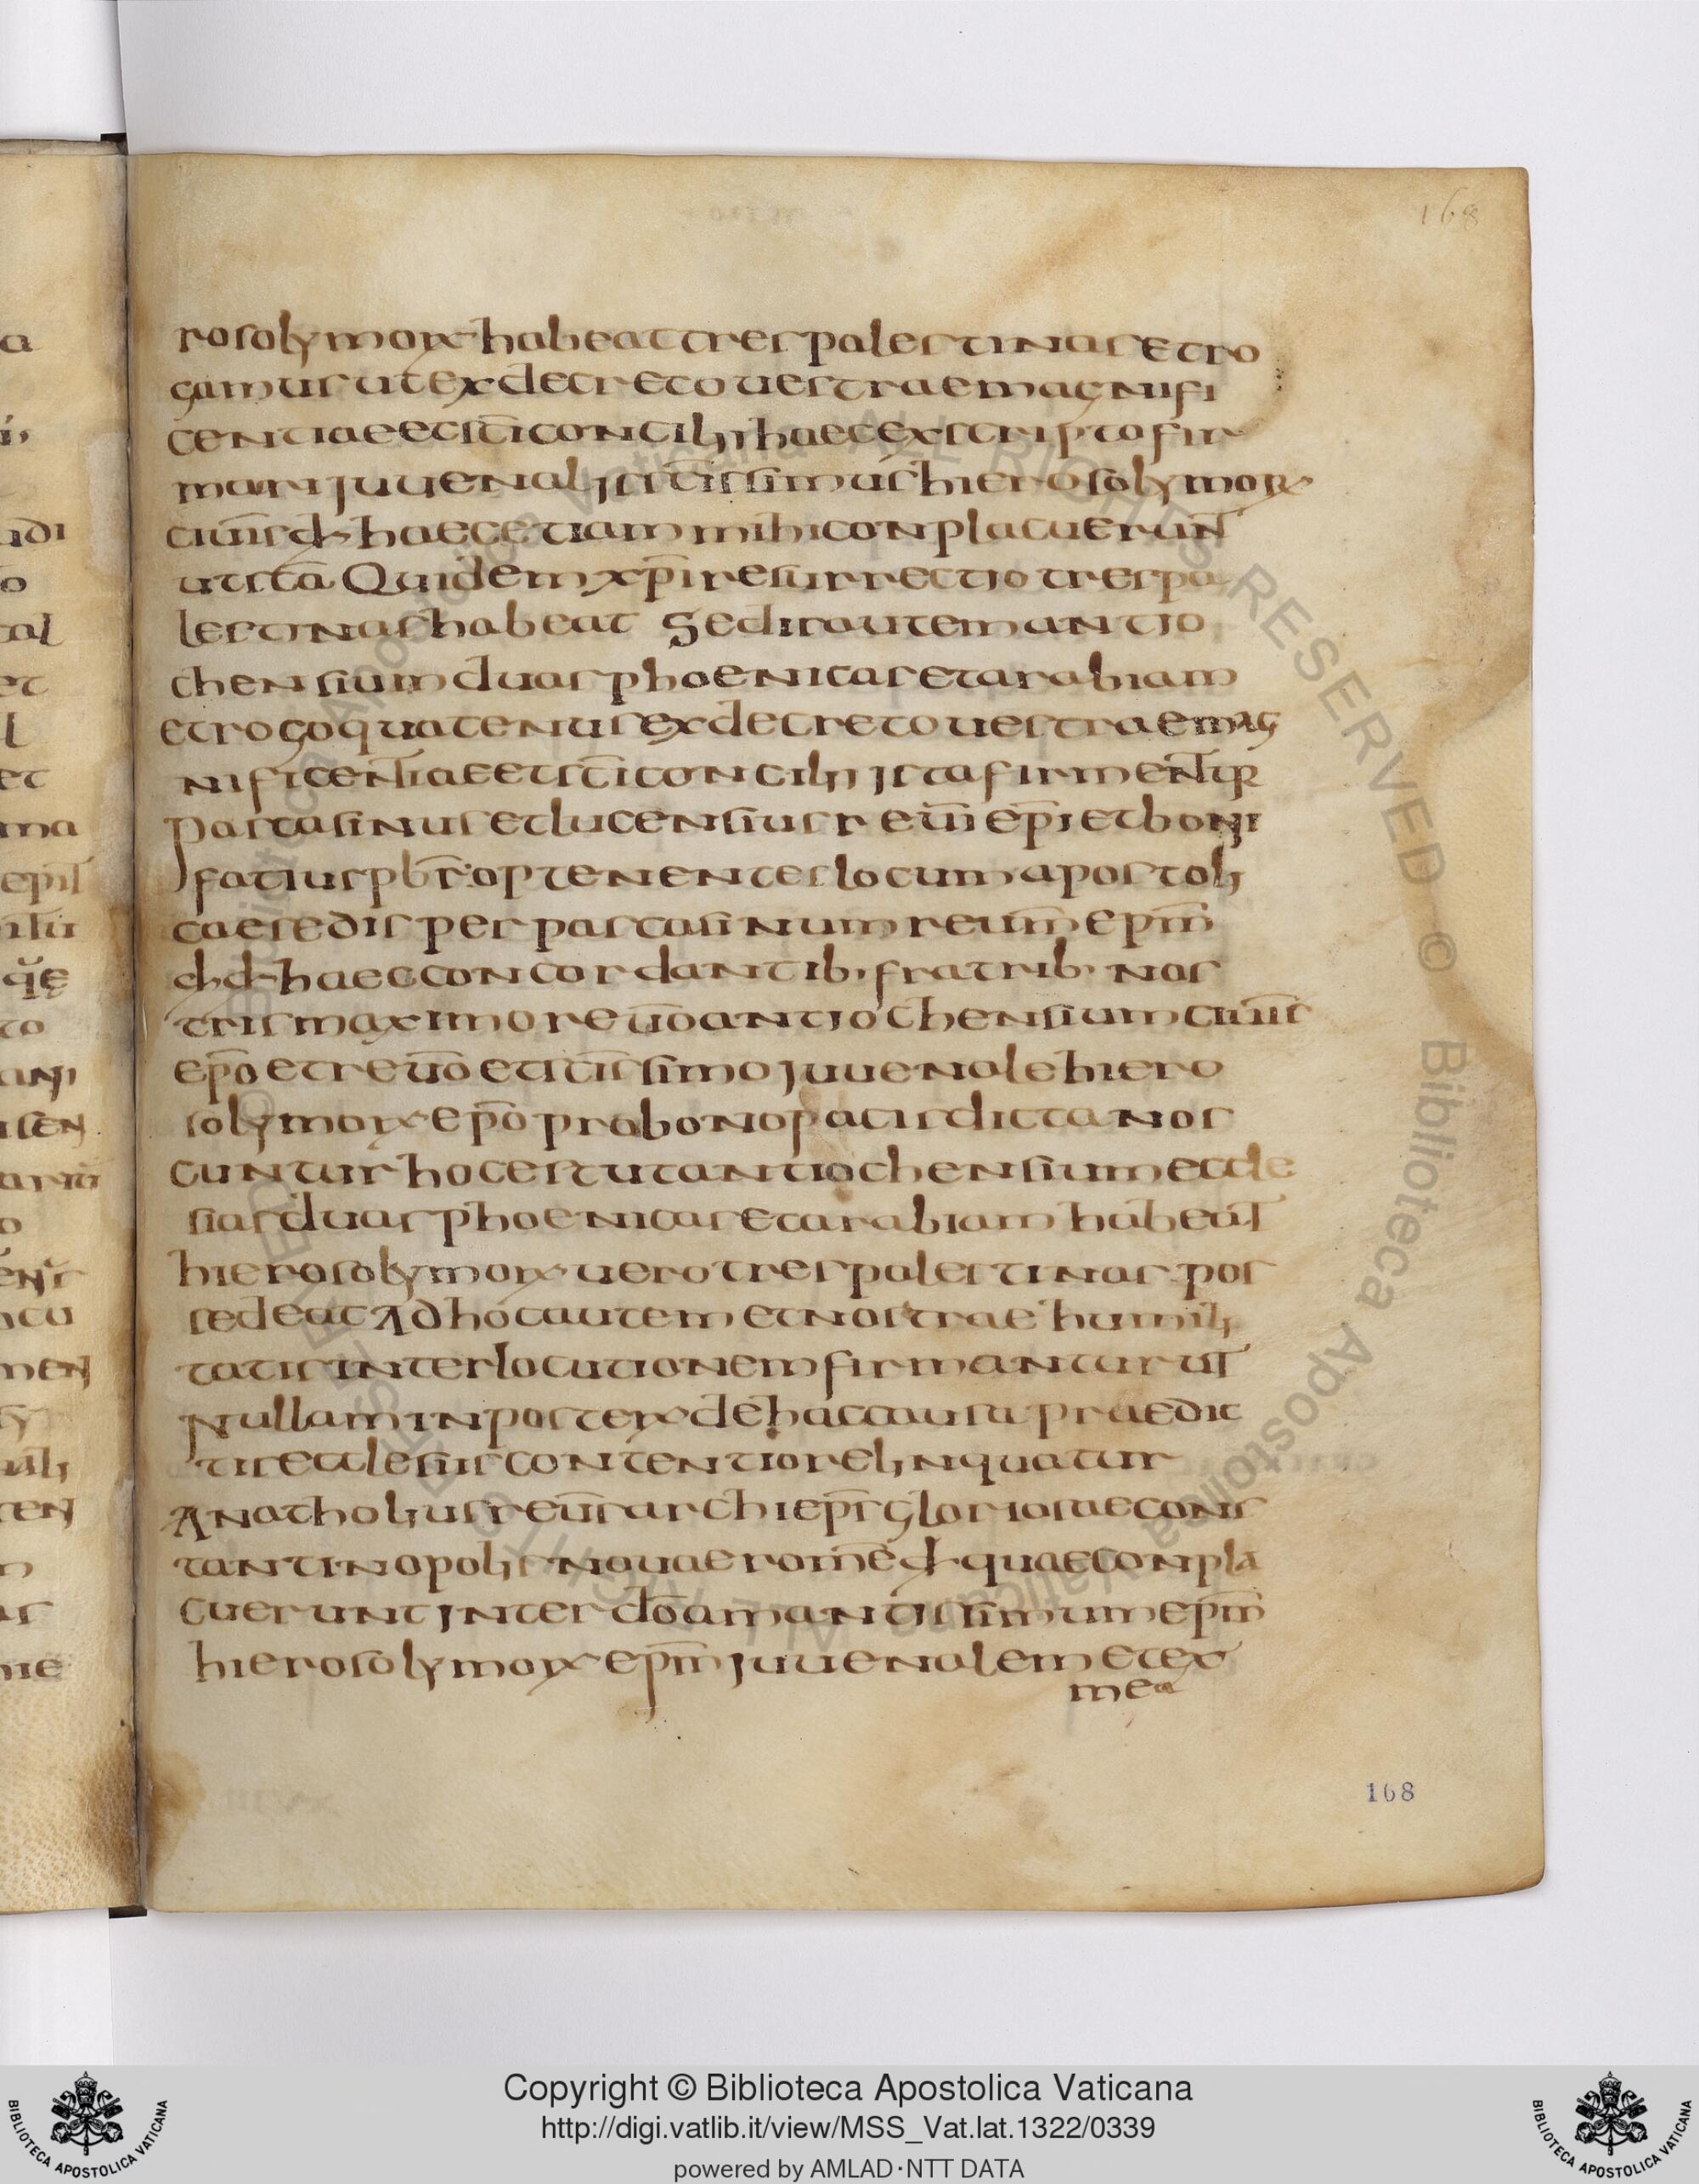 168
rosolymoꝝ habeat tres palestinas et ro
gamus ut ex decreto uestrae magnifi
centiae et sc̄i concilii haec ex scripto fir
mari juuenalis sc̄issimus hierosolymoꝝ
ciuit̄s d̄x haec etiam mihi conplacuerun̄t
ut sc̄a Quidem xp̄i resurrectio tres pa
lestinas habeat Sedis autem antio
chensium duas phoenicas et arabiam
et rogo quatenus ex decreto uestrae mag
nificentiae et sc̄i concilii ista firmentur
Pascasinus et lucensius reuī ep̄i et boni
fatius pb̄r optenentes locum apostoli
cae sedis per pascasinum reuum̄ epm̄
d̄d̄x haec concordantib· fratrib· nos
tris maximo reuō antiochensium ciuit̄
ep̄o et reuō et sc̄issimo juuenale hiero
solymoꝝ ep̄o pro bono pacis dicta nos
cuntur hoc est ut antiochensium eccle
sias duas phoenicas et arabiam habeat
hierosolymoꝝ uero tres palestinas pos
sedeat Ad hoc autem et nostrae humili
tatis interlocutionem firmantur ut
Nullam in posteꝝ de hac causa praedic
tis ecclesiis contentio relinquatur
Anatholius reūs archiep̄s gloriosae cons
tantinopolis nouae rome d̄x quae conpla
cuerunt inter dō amantissimum epm̄
hierosolymoꝝ epm̄ juuenalem et ex
mea
168
Copyright © Biblioteca Apostolica Vaticana
http://digi.vatlib.it/view/MSS_Vat.lat.1322/0339
powered by AMLAD·NTT DATA
BIBLIOTECA APOSTOLICA VATICANA
BIBLIOTECA APOSTOLICA VATICANA